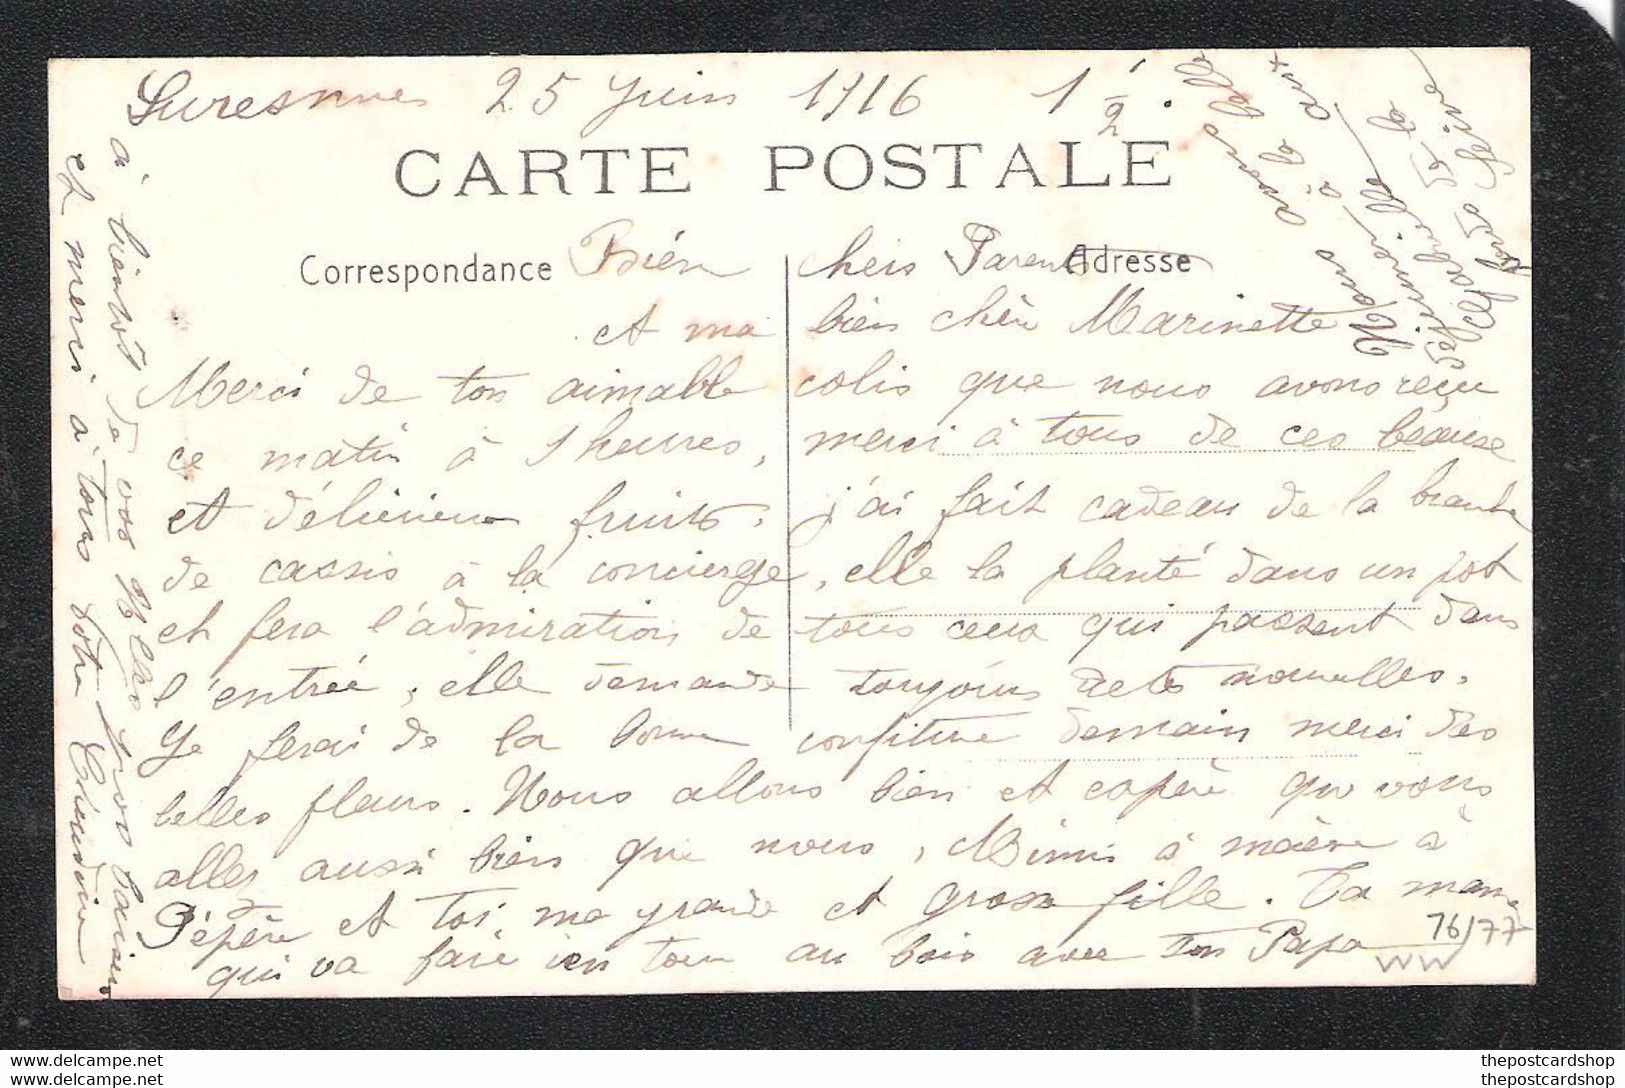 Suresnnes 25 Juin 1916 1 1/2.
CARTE POSTALE
Correspondance
Adresse
Bien chers Parents
et ma bien chère Marinette
Merci de ton aimable colis que nous avons reçu
ce matin à 1 heures, merci à tous de ces beause
et délicieux fruits. j'ai fait cadeau de la branche
de cassis à la concierge, elle la planté dans un pot
et fera l'admiration de tous ceux qui passent dans
l'entrée, elle demande toujours de tes nouvelles.
Je ferai de la bonne confiture demain merci des
belles fleurs. Nous allons bien et espère que vous
allez aussi bien que nous, Mimi à mère à
Pépère et toi ma grande et grosse fille. Ta maman
qui va faire un tour au bois avec ton Papa
à bientôt de vos gros baisers
et merci à tous votre
Nous avons
à la
aux
la
Seine
76/77
WW
thepostcardshop.net
thepostcardshop.net
thepostcardshop
thepostcardshop